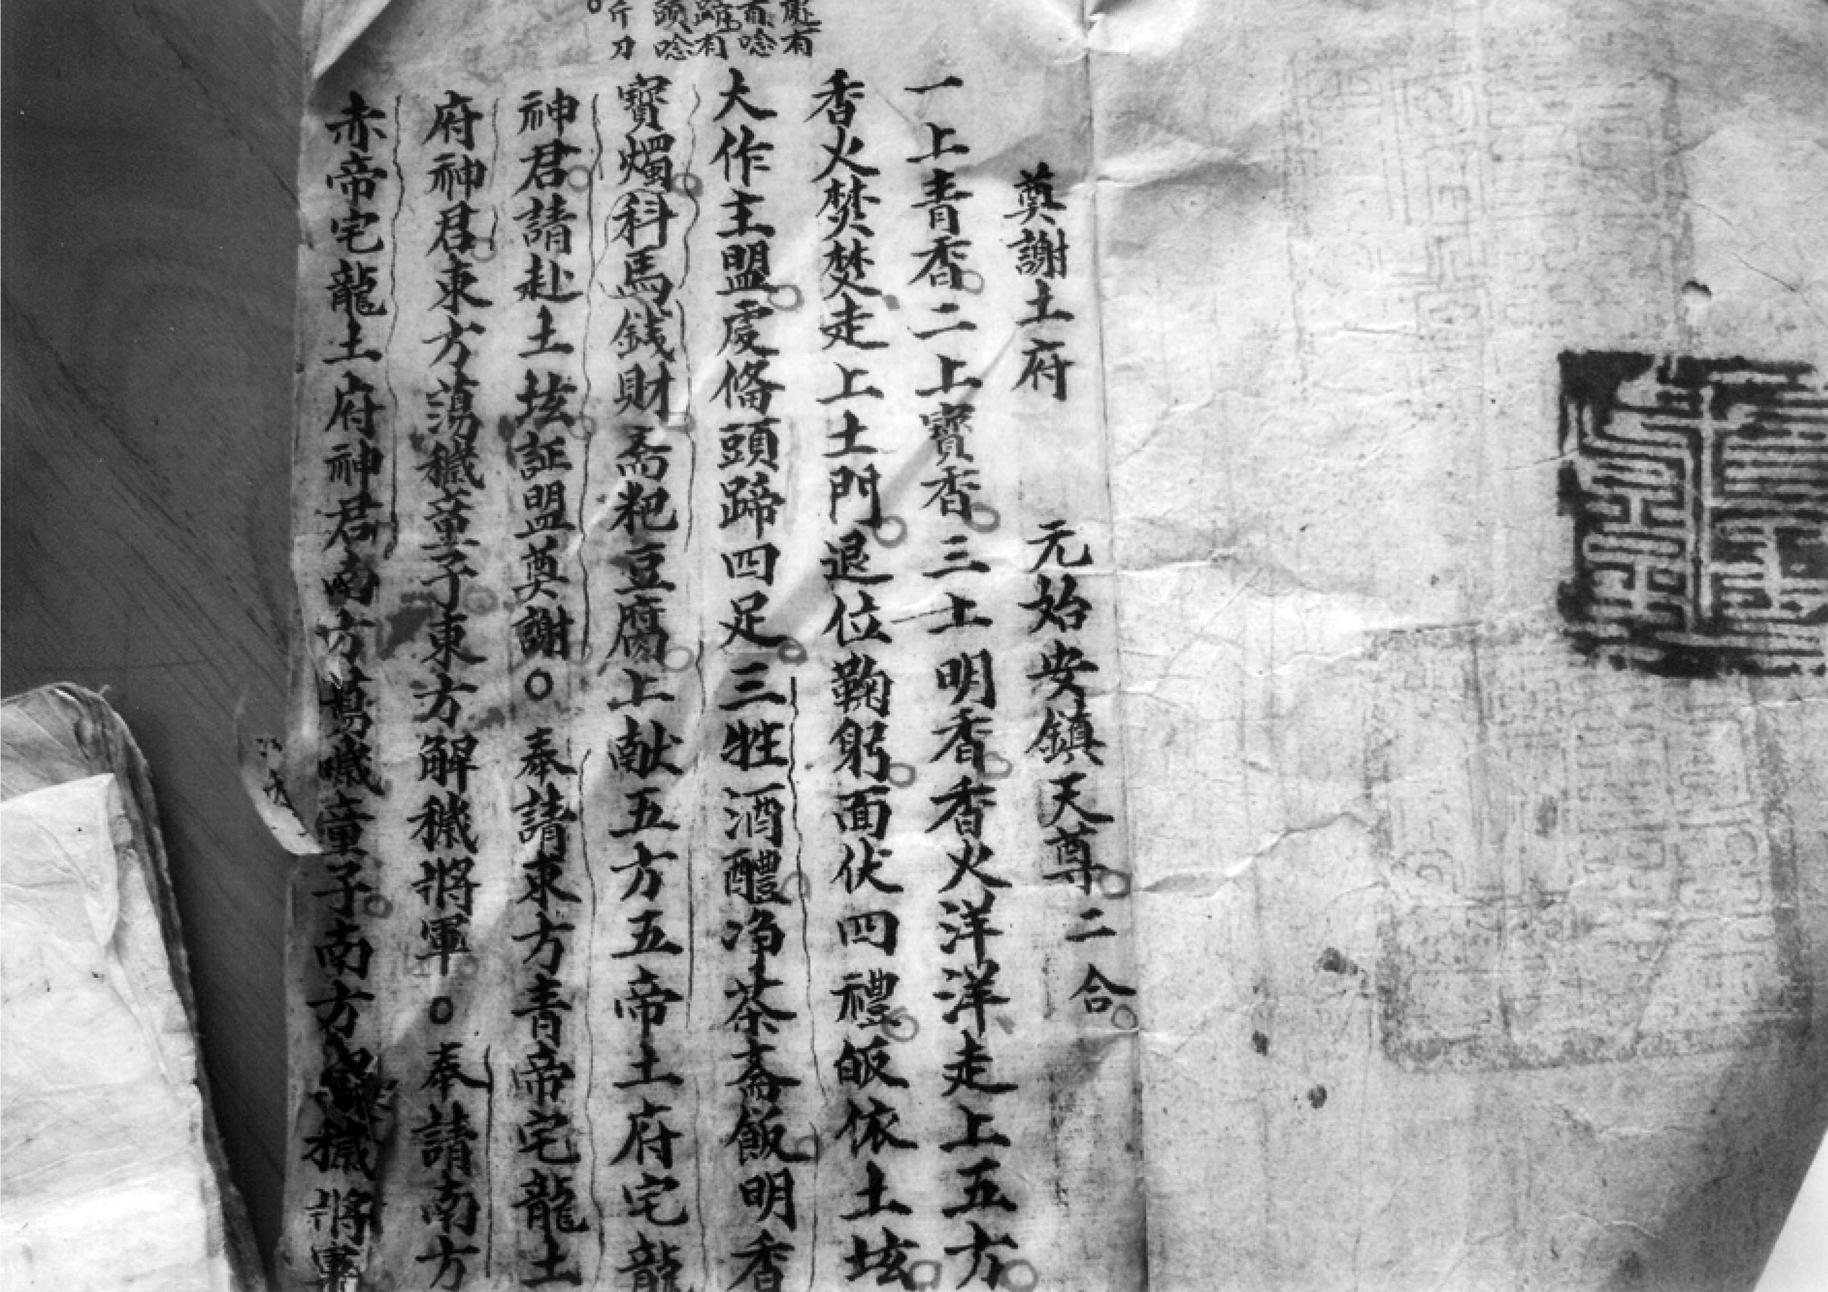 奠謝土府　元始安鎮天尊二合
一上青香二上寶香三上明香香火洋洋走上五方
香火焚焚走上土門退位鞠躬面伏四禮皈依土垓
大作主盟虔俻頭蹄四足三牲酒醴净茶斋飯明香
寶燭科馬錢財斋粑豆腐上献五方五帝土府宅龍
神君請赴土垓証盟奠謝○奉請東方青帝宅龍土
府神君東方蕩穢童子東方解穢將軍○奉請南方
赤帝宅龍土府神君南方蕩穢童子南方穢將軍
有
百唸
蹄有
頭唸
斤刀